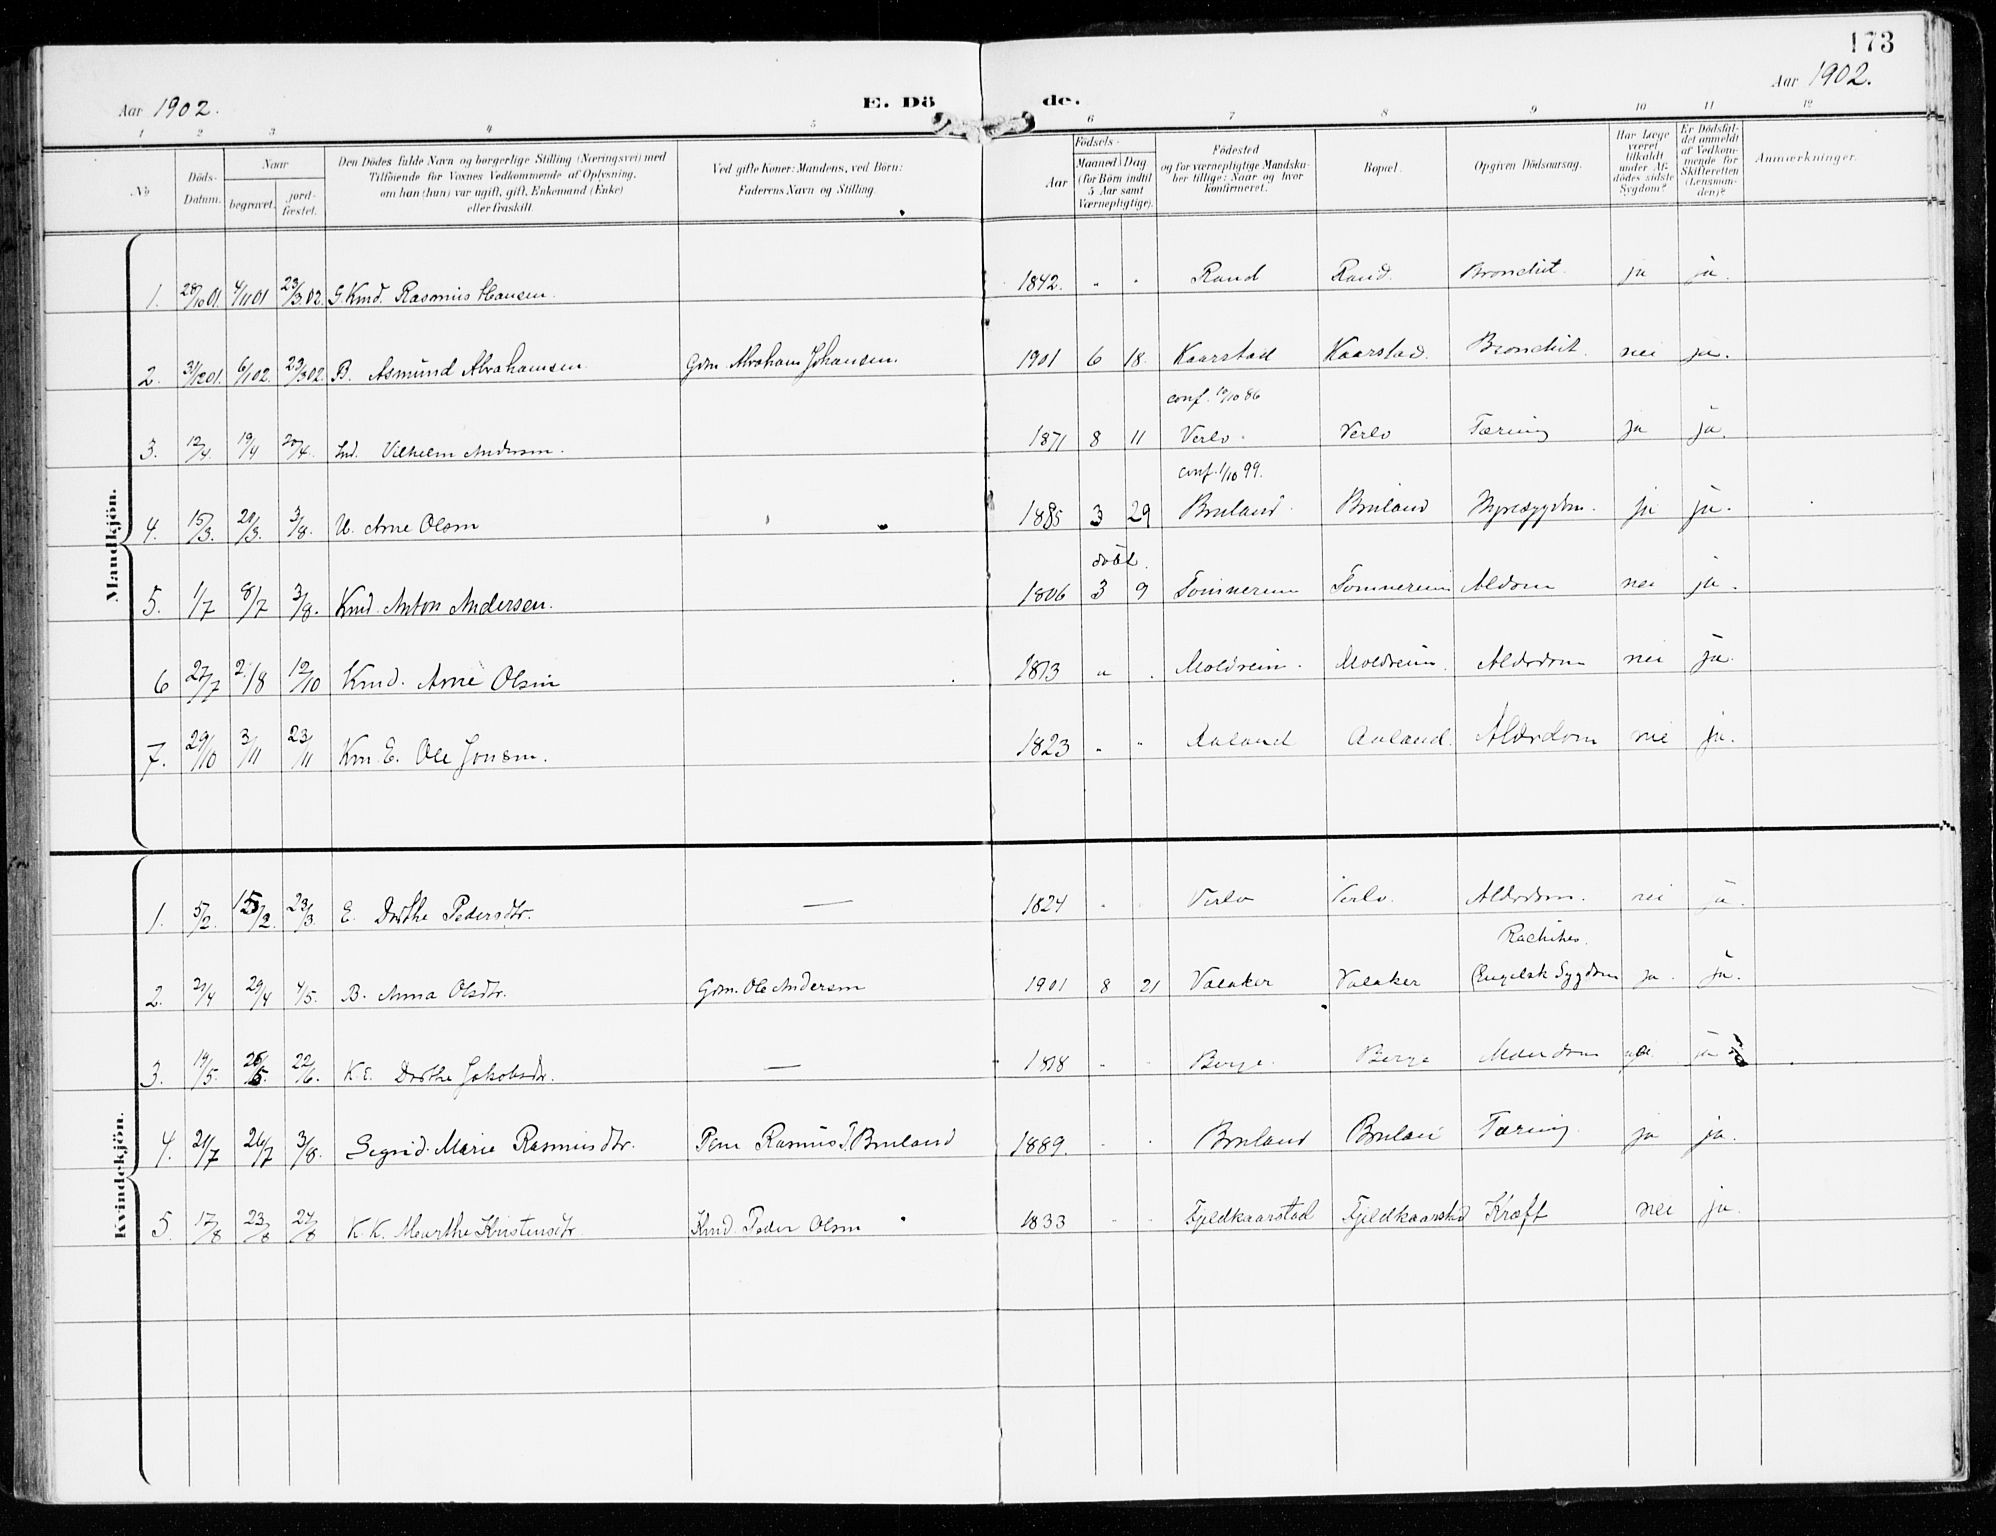 173
Aar 1902.
E. Dö de.
Aar 1902.
1 2 3 4 5 6 7 8 9 10 11 12
No
Döds-Datum.
Naar
begravet.
jordfæstet.
Den Dödes fulde Navn og borgerlige Stilling (Næringsvei) med
Tilföiende for Voxnes Vedkommende af Oplysning,
om han (hun) var ugift, gift, Enkemand (Enke)
eller fraskilt.
Ved gifte Koner: Mandens, ved Börn:
Faderens Navn og Stilling.
Födsels-
Aar
Maaned Dag
(for Börn indtil
5 Aar samt
Værnepligtige).
Födested
og for værnepligtige Mandska-
ber tillige: Naar og hvor
konfirmeret.
Bopæl.
Opgiven Dödsaarsag.
Har Læge
været
tilkaldt
under Af-
dödes sidste
Sygdom?
Er Dödsfal-
det anmeldt
af Vedkom-
mende for
Skifteretten
(Lensman-
den)?
Anmærkninger.
Mandkjön.
1. 28/10 01. 4/11 01 23/3 02. G. Kmd. Rasmus Hansen. 1842. " " Rand Rand. Bronchit. ja ja.
2. 31/12 01. 6/1 02. 23/3 02. B. Asmund Abrahamsen Gdm. Abraham Johansen. 1901 6 18. Kaarstad Kaarstad. Bronchit. nei ja.
conf. 10/10 86
3. 12/4. 19/4 20/4. Ind. Vilhelm Andersen. 1871 8 11 Verlo. Verlo Tæring ja ja.
conf. 1/10 99.
4. 15/3. 21/3. 3/8. U. Arne Olsen 1885 3 29 Bruland. Bruland Nyresygdom. ja ja.
döbt.
5. 1/7 8/7 3/8. Kmd. Anton Andersen. 1806 3 9 Tomnerem Tomnereim Aldom nei ja.
6 27/7 2/8 12/10 Kmd. Arne Olsen 1813 " . Moldreim. Moldreim. Alderdom nei ja.
7. 29/10 3/11 23/11 Km. E. Ole Jonsen. 1823 " " Aaland Aaland. Alderdom nei ja.
Kvindekjön.
1. 5/2. 15/2. 23/3 E. Dorthe Pedersdtr. — 1824 " " Verlo Verlo. Alderdom. nei ja.
Rachites.
2. 21/4 29/4 4/5. B. Anna Olsdtr. Gdm. Ole Andersen 1901 8 21 Valaker Valaker (Engelsk Sygdom ja. ja.
3. 19/5. 26/5. 22/6. K. E. Dorthe Jakobsdtr. — 1818 " " Berge. Berge Alderdom ja
4. 21/7 26/7 3/8. Sigrid Marie Rasmusdtr. Rasmus Bruland 1889. " " Bruland Bruland Tæring ja ja.
5. 17/8 23/8 24/8 K. K. Marthe Kristensdtr. Kmd. Peder Olsen 1833 " " Fjeldkaarstad Fjeldkaarstad Kræft nei ja.